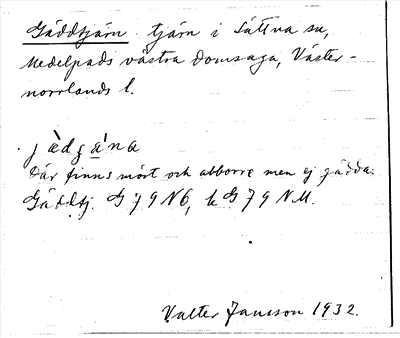 Gäddtjärn tjärn i Sättna sn,
Medelpads västra domsaga, Väster-
norrlands l.
jǽdgána
Där finns mört och abborre men ej gädda.
Gäddtj. G 79 NÖ, k G 79 N.M.
Valter Jansson 1932.